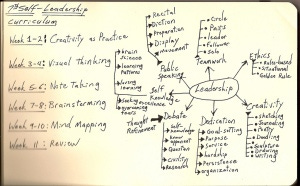 7th Self-Leadership
curriculum
Week 1-2: Creativity as Practice
Week 3-4: Visual Thinking
Week 5-6: Note Taking
Week 7-8: Brainstorming
Week 9-10: Mind Mapping
Week 11: Review
Recital
Diction
Preparation
Display
Movement
Public
Speaking
circle
Pairs
leader
follower
solo
Teamwork
Ethics
Rules-based
situational
Golden Rule
brain
science
learning
patterns
living
learning
Self
Knowledge
Leadership
Creativity
sketching
Doodling
Poetry
Sculpture
Drawing
writing
Debate
self-
knowledge
know
opponent
Question
civility
Research
Thought
Refinement
Dedication
Goal-setting
Purpose
service
hardship
Persistence
organization